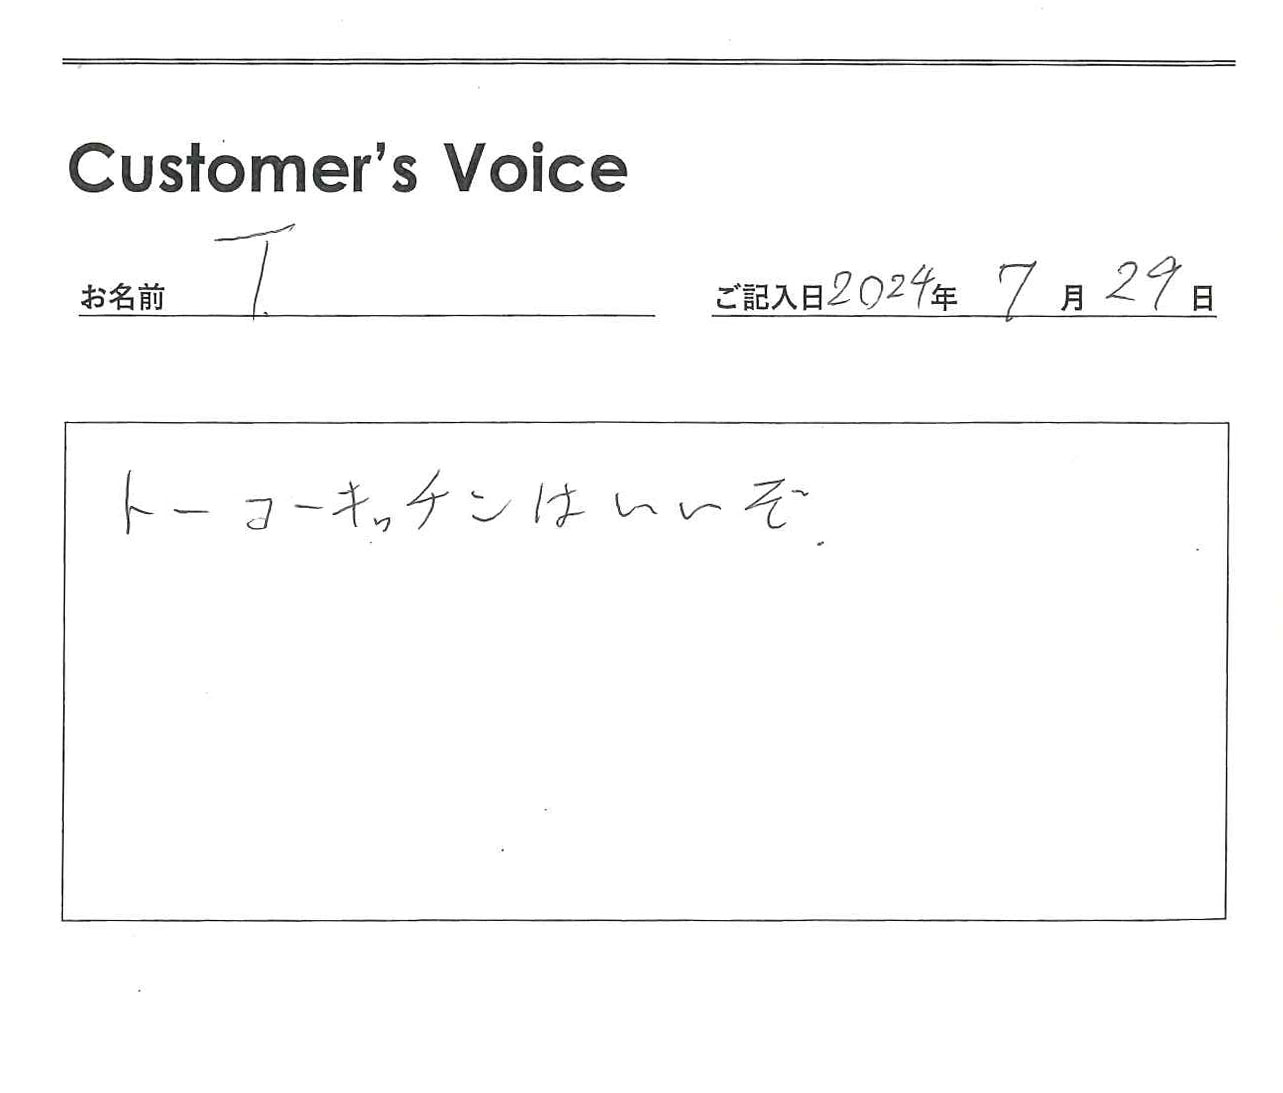 Customer's Voice
お名前 T.
ご記入日2024年 7月 29日
トーコーキッチンはいいぞ.